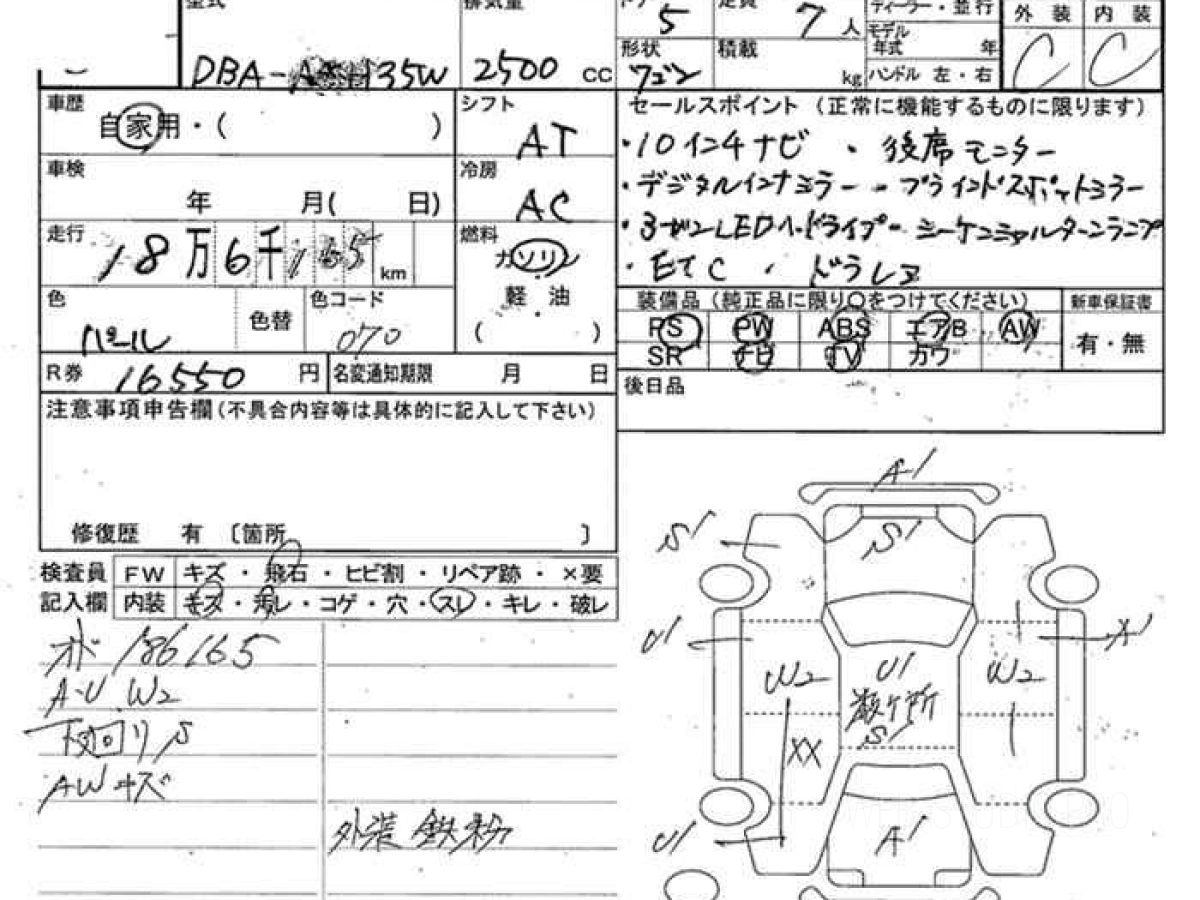 型式 排気量 ドア 5 定員 7人 ディーラー・並行
モデル年式 年
外装 内装
DBA- H35W 2500 CC
形状 ワゴン 積載 kg ハンドル 左・右
C C
車歴 自家用・( )
シフト AT
セールスポイント (正常に機能するものに限ります)
・10インチナビ ・ 後席モニター
車検 年 月( 日)
冷房 AC
・デジタルインナミラー ・ブラインドスポットミラー
・3眼LEDヘッドライプ・シーケンシャルターンランプ
・ETC ・ ドラレコ
走行 18万6千165 km
燃料 ガソリン
軽油
( )
色 パール 色替 色コード 070
装備品 (純正品に限り○をつけてください) 新車保証書
PS PW ABS エアB AW 有・無
SR ナビ TV カワ
R券 16550 円 名変通知期限 月 日
後日品
注意事項申告欄(不具合内容等は具体的に記入して下さい)
修復歴 有 〔箇所 〕
検査員 FW キズ・飛石・ヒビ割・リペア跡・×要
記入欄 内装 キズ・汚レ・コゲ・穴・スレ・キレ・破レ
オド 186165
A・U W2
下回り S
AWキズ
外装 鉄粉
A1
S1 S1
U1 X1
W2 U1 W2
数ヶ所
S
XX
U1 A1